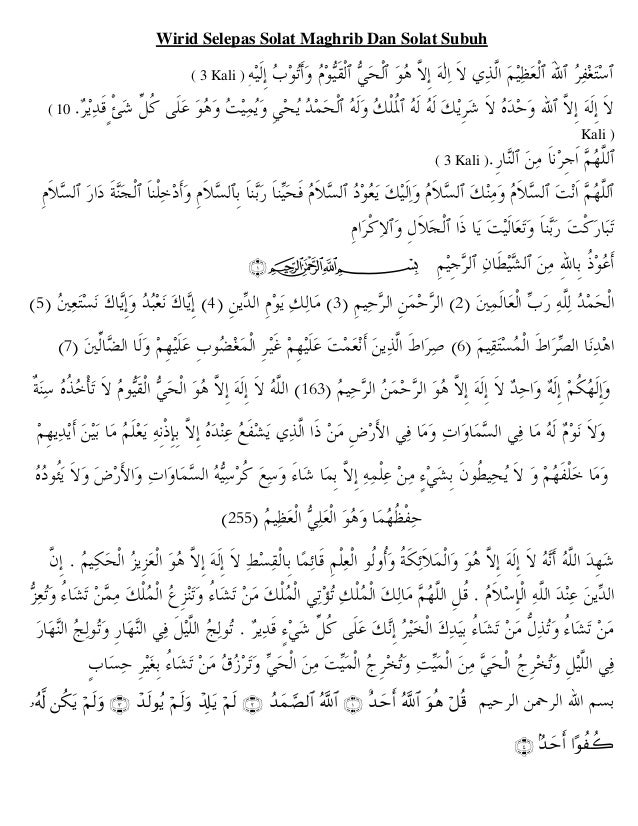 Wirid Selepas Solat Maghrib Dan Solat Subuh
ٱسْتَغْفِرُ ٱللهَ ٱلْعَظِيْمَ ٱلَّذِي لَا إِلٰهَ إِلاَّ هُوَ ٱلْحَيُّ ٱلْقَيُّوْمُ وَأَتُوْبُ إِلَيْهِ ( 3 Kali )
لَا إِلَهَ إِلاَّ ٱلله وَحْدَهُ لَا شَرِيْكَ لَهُ لَهُ ٱلْمُلْكُ وَلَهُ ٱلْحَمْدُ يُحْيِ وَيُمِيْتُ وَهُوَ عَلَى كُلِّ شَىْءٍ قَدِيْرٌ. ( 10
Kali )
ٱللَّهُمَّ اَجِرْنَا مِنَ ٱلنَّارِ. ( 3 Kali )
ٱللَّهُمَّ اَنْتَ ٱلسَّلَامُ وَمِنْكَ ٱلسَّلَامُ وَاِلَيْكَ يَعُوْدُ ٱلسَّلَامُ فَحَيِّنَا رَبَّنَا بِٱلسَّلَامِ وَأَدْخِلْنَا ٱلْجَنَّةَ دَارَ ٱلسَّلَامِ
تَبَارَكْتَ رَبَّنَا وَتَعَالَيْتَ يَا ذَا ٱلْجَلَالِ وَٱلإِكْرَامِ
أَعُوْذُ بِاللهِ مِنَ ٱلشَّيْطَانِ ٱلرَّجِيْمِ بِسْمِ ٱللَّهِ ٱلرَّحْمَٰنِ ٱلرَّحِيمِ ۝١
الْحَمْدُ لِلَّهِ رَبِّ الْعَالَمِينَ (2) الرَّحْمَنِ الرَّحِيمِ (3) مَالِكِ يَوْمِ الدِّينِ (4) إِيَّاكَ نَعْبُدُ وَإِيَّاكَ نَسْتَعِينُ (5)
اهْدِنَا الصِّرَاطَ الْمُسْتَقِيمَ (6) صِرَاطَ الَّذِينَ أَنْعَمْتَ عَلَيْهِمْ غَيْرِ الْمَغْضُوبِ عَلَيْهِمْ وَلَا الضَّالِّينَ (7)
وَإِلَهُكُمْ إِلَهٌ وَاحِدٌ لَا إِلَهَ إِلاَّ هُوَ الرَّحْمَنُ الرَّحِيمُ (163) اللَّهُ لَا إِلَهَ إِلاَّ هُوَ الْحَيُّ الْقَيُّومُ لَا تَأْخُذُهُ سِنَةٌ
وَلَا نَوْمٌ لَهُ مَا فِي السَّمَاوَاتِ وَمَا فِي الأَرْضِ مَنْ ذَا الَّذِي يَشْفَعُ عِنْدَهُ إِلاَّ بِإِذْنِهِ يَعْلَمُ مَا بَيْنَ أَيْدِيهِمْ
وَمَا خَلْفَهُمْ وَ لَا يُحِيطُونَ بِشَيْءٍ مِنْ عِلْمِهِ إِلاَّ بِمَا شَاءَ وَسِعَ كُرْسِيُّهُ السَّمَاوَاتِ وَالأَرْضَ وَلَا يَئُودُهُ
حِفْظُهُمَا وَهُوَ الْعَلِيُّ الْعَظِيمُ (255)
شَهِدَ اللَّهُ أَنَّهُ لَا إِلَهَ إِلاَّ هُوَ وَالْمَلاَئِكَةُ وَأُولُو الْعِلْمِ قَائِمًا بِالْقِسْطِ لَا إِلَهَ إِلاَّ هُوَ الْعَزِيزُ الْحَكِيمُ . إِنَّ
الدِّينَ عِنْدَ اللَّهِ الْإِسْلَامُ . قُلِ اللَّهُمَّ مَالِكَ الْمُلْكِ تُؤْتِي الْمُلْكَ مَنْ تَشَاءُ وَتَنْزِعُ الْمُلْكَ مِمَّنْ تَشَاءُ وَتُعِزُّ
مَنْ تَشَاءُ وَتُذِلُّ مَنْ تَشَاءُ بِيَدِكَ الْخَيْرُ إِنَّكَ عَلَى كُلِّ شَيْءٍ قَدِيرٌ . تُولِجُ اللَّيْلَ فِي النَّهَارِ وَتُولِجُ النَّهَارَ
فِي اللَّيْلِ وَتُخْرِجُ الْحَيَّ مِنَ الْمَيِّتِ وَتُخْرِجُ الْمَيِّتَ مِنَ الْحَيِّ وَتَرْزُقُ مَنْ تَشَاءُ بِغَيْرِ حِسَابٍ
بسم الله الرحمن الرحيم قُلْ هُوَ ٱللَّهُ أَحَدٌ ۝١ ٱللَّهُ ٱلصَّمَدُ ۝٢ لَمْ يَلِدْ وَلَمْ يُولَدْ ۝٣ وَلَمْ يَكُن لَّهُۥ
كُفُوًا أَحَدٌ ۝٤